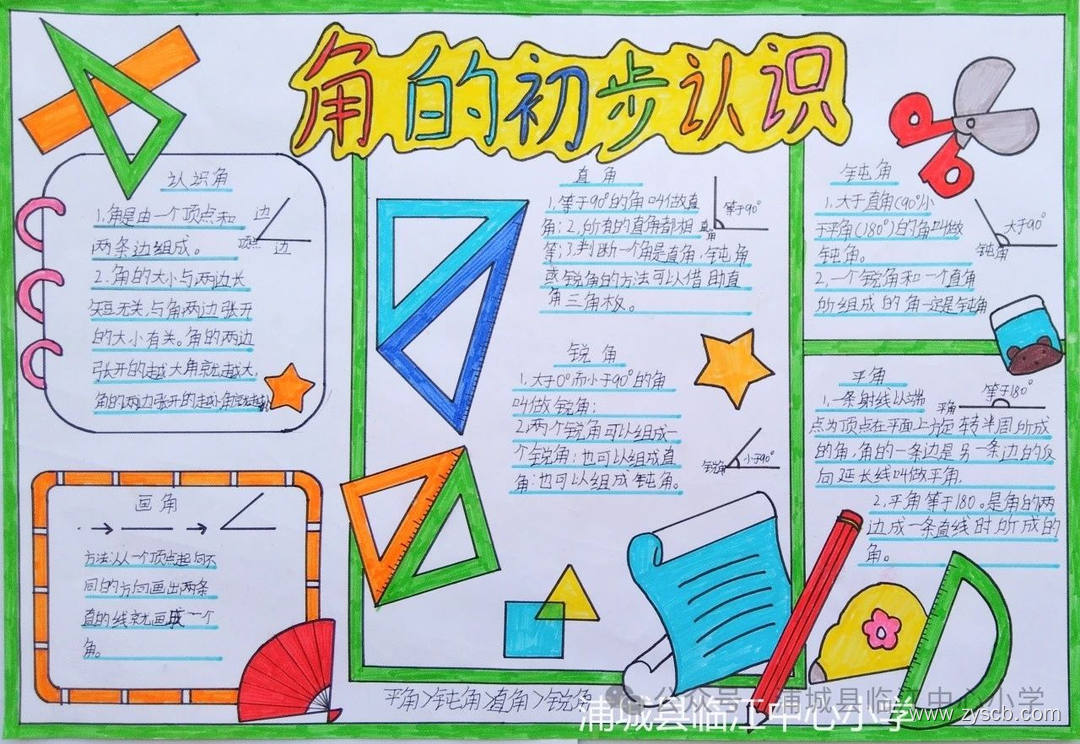 角的初步认识
认识角
1.角是由一个顶点和
两条边组成。
2.角的大小与两边长
短无关,与角两边张开
的大小有关。角的两边
张开的越大角就越大,
角的两边张开的越小角就越小
边
顶点
边
画角
方法:从一个顶点起向不
同的方向画出两条
直的线就画成一个
角。
直角
1.等于90°的角叫做直
角;2,所有的直角都相
等;3.判断一个角是直角,钝角
或锐角的方法可以借助直
角三角板。
等于90°
直角
锐角
1.大于0°而小于90°的角
叫做锐角;
2.两个锐角可以组成一
个锐角;也可以组成直
角;也可以组成钝角。
锐角
小于90°
钝角
1.大于直角(90°)小
于平角(180°)的角叫做
钝角。
2,一个锐角和一个直角
所组成的角一定是钝角
大于90°
钝角
平角
1.一条射线以端
点为顶点在平面上旋转半周所成
的角,角的一条边是另一条边的反
向延长线叫做平角.
2.平角等于180。是角的两
边成一条直线时所成的
角。
等于180°
平角
平角>钝角>直角>锐角
公众号·浦城县临江中心小学
浦城县临江中心小学
www.zyscb.com